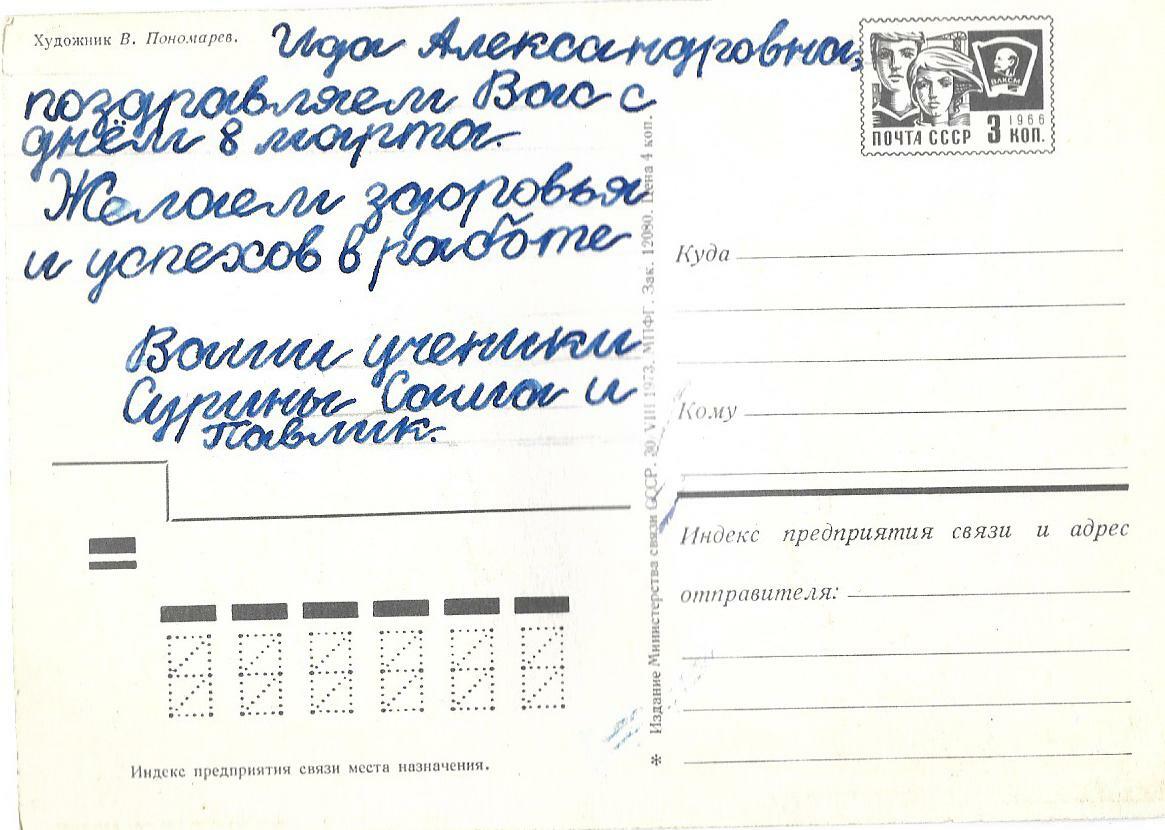 Художник В. Пономарев.
Ида Александровна,
поздравляем Вас с
днём 8 марта.
Желаем здоровья
и успехов в работе
Ваши ученики
Сурины Саша и
Павлик.
Индекс предприятия связи места назначения.
Издание Министерства связи СССР. 30/VIII 1973. МПФГ. Зак. 12080. Цена 4 коп.
ВЛКСМ
1966
ПОЧТА СССР 3 КОП.
Куда
Кому
Индекс предприятия связи и адрес
отправителя: